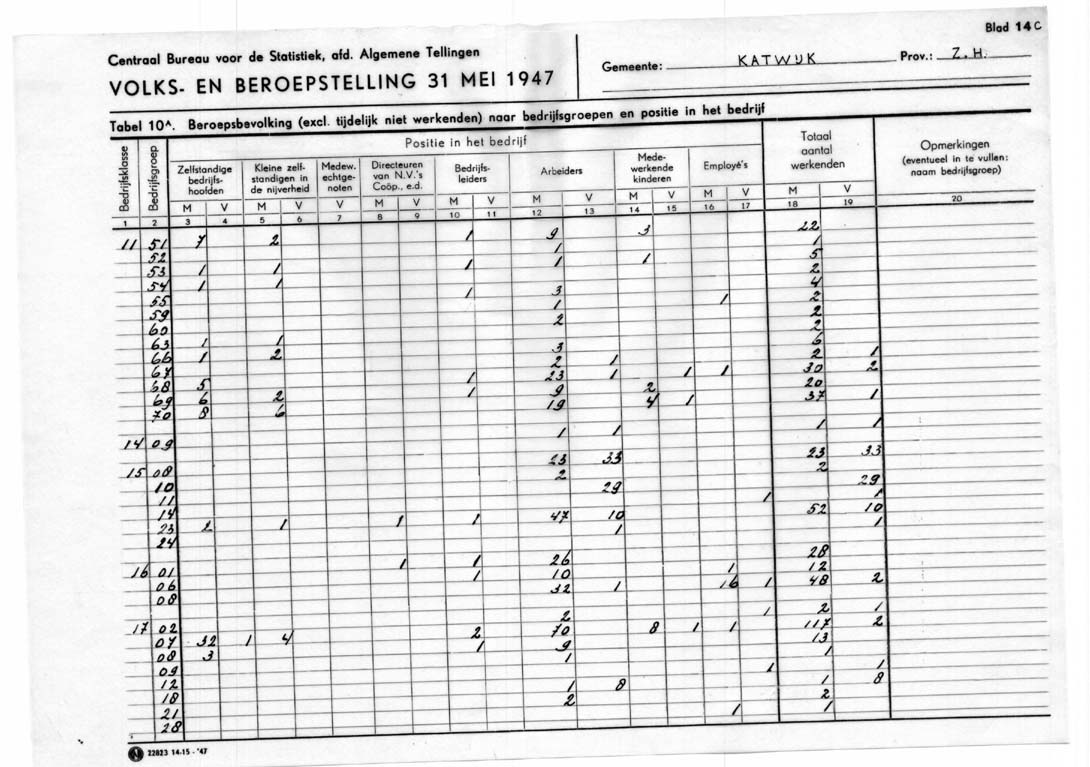 Blad 14 C
Centraal Bureau voor de Statistiek, afd. Algemene Tellingen
VOLKS- EN BEROEPSTELLING 31 MEI 1947
Gemeente: KATWIJK Prov.: Z.H.
Tabel 10ᴬ. Beroepsbevolking (excl. tijdelijk niet werkenden) naar bedrijfsgroepen en positie in het bedrijf
Bedrijfsklasse
Bedrijfsgroep
Positie in het bedrijf
Zelfstandige
bedrijfs-
hoofden
Kleine zelf-
standigen in
de nijverheid
Medew.
echtge-
noten
Directeuren
van N.V.'s
Coöp., e.d.
Bedrijfs-
leiders
Arbeiders
Mede-
werkende
kinderen
Employé's
Totaal
aantal
werkenden
Opmerkingen
(eventueel in te vullen:
naam bedrijfsgroep)
M V M V V M V M V M V M V M V M V
1 2 3 4 5 6 7 8 9 10 11 12 13 14 15 16 17 18 19 20
11 51 7 2 1 9 3 22
52 1 1
53 1 1 1 1 1 5
54 1 1 2
55 1 3 4
59 1 1 2
60 2 2
63 1 1 2
66 1 2 3 6
67 2 1 2 1
68 5 1 23 1 1 1 30 2
69 6 2 1 9 2 20
70 8 6 19 4 1 37 1
14 09 1 1 1 1
15 08 23 33 23 33
10 2 2
11 29 29
14 1 1
23 2 1 1 1 47 10 52 10
24 1 1
16 01 1 1 26 28
06 1 10 1 12
08 32 1 16 1 48 2
17 02 2 1 2 1
07 32 1 4 2 70 8 1 1 117 2
08 3 1 9 13
09 1 1
12 1 1
18 1 8 1 8
21 2 2
28 1 1
22823 14-15 - '47